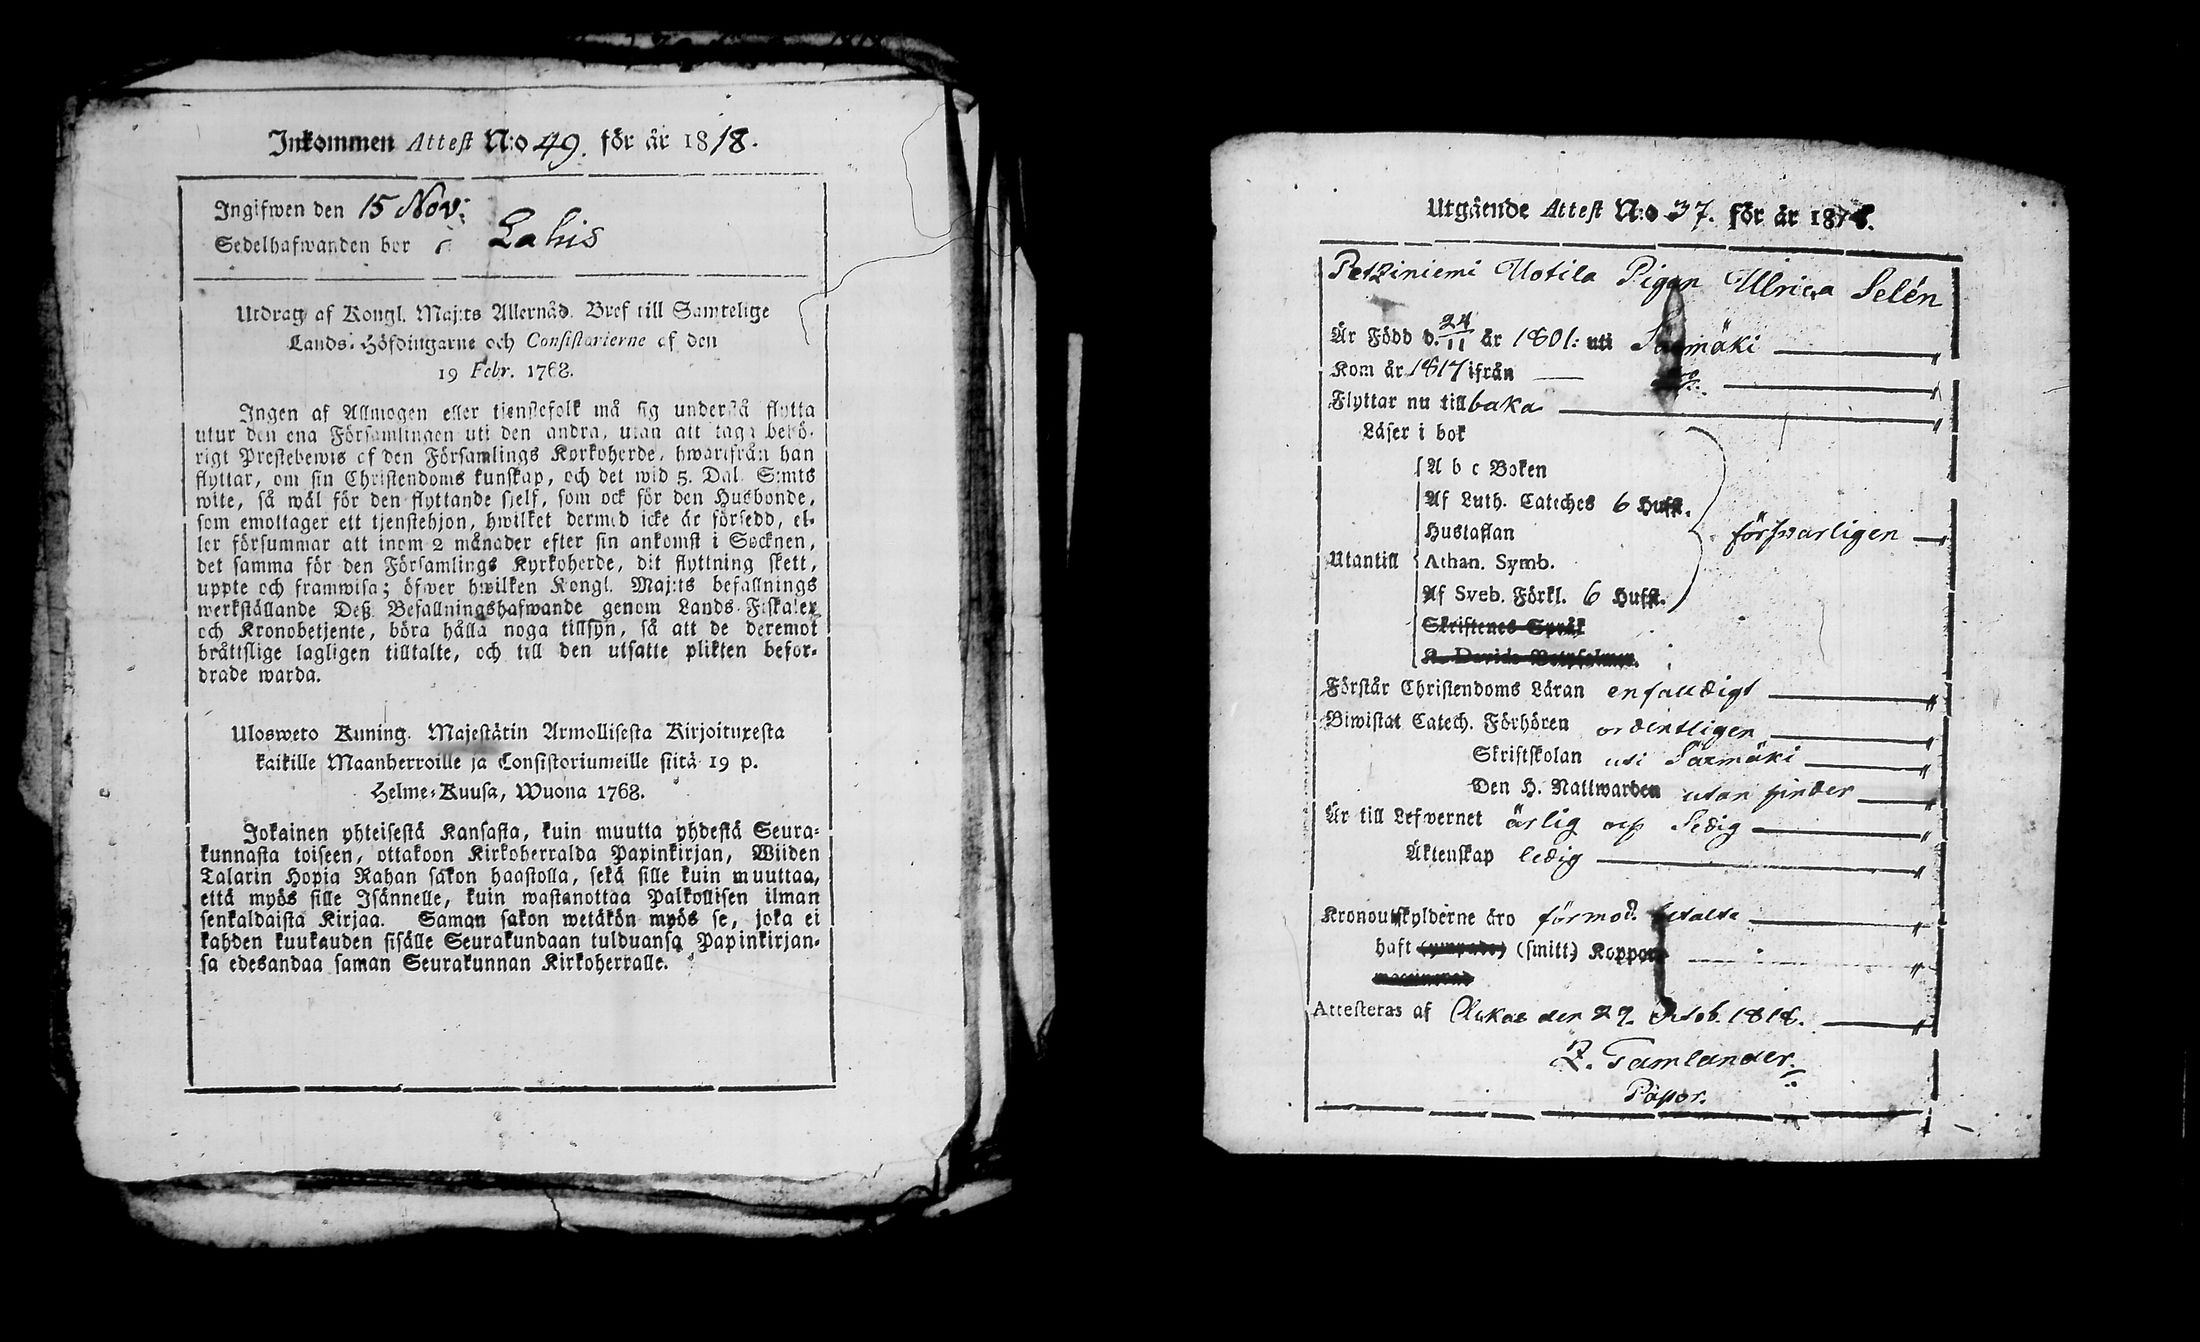 Inkommen Attest N:o 49. för år 1818.
Ingifwen den 15 Nov:
Sedelhafwanden bor i Lahis
Utdrag af Kongl. Maj:ts Allernåd. Bref till Samtelige
Lands-Höfdingarne och Consistorierne af den
19 Febr. 1768.
Ingen af Allmogen eller tjenstefolk må sig understå flytta
utur den ena Församlingen uti den andra, utan att taga behö-
rigt Prestebewis af den Församlings Kyrkoherde, hwarifrån han
flyttar, om sin Christendoms kunskap, och det wid 5. Dal. S:mts
wite, så wäl för den flyttande sjelf, som ock för den Husbonde,
som emottager ett tjenstehjon, hwilket dermed icke är försedd, el-
ler försummar att inom 2 månader efter sin ankomst i Socknen,
det samma för den Församlings Kyrkoherde, dit flyttning skett,
uppte och framwisa; öfwer hwilken Kongl. Maj:ts befallnings
werkställande Deß Befallningshafwande genom Lands-Fiskaler
och Kronobetjente, böra hålla noga tillsyn, så att de deremot
bråttslige lagligen tilltalte, och till den utsatte plikten befor-
drade warda.
Ulosweto Kuning. Majestätin Armollisesta Kirjoituxesta
kaikille Maanherroille ja Consistoriumeille siitä 19 p.
Helme-Kuusa, Wuona 1768.
Jokainen yhteisestä Kansasta, kuin muutta yhdestä Seura-
kunnasta toiseen, ottakoon Kirkoherralda Papinkirjan, Wiiden
Talarin Hopia Rahan sakon haastolla, sekä sille kuin muuttaa,
että myös sille Isännelle, kuin wastanottaa Palkollisen ilman
senkaldaista Kirjaa. Saman sakon wetäkön myös se, joka ei
kahden kuukauden sisälle Seurakundaan tulduansa Papinkirjan-
sa edesandaa saman Seurakunnan Kirkoherralle.
Utgående Attest N:o 37. för år 1818.
Petziniemi Uotila Pigan Ulrica Selén
Är Född d. 24/11 år 1801: uti Särmäki
Kom år 1817 ifrån
Flyttar nu tillbaka
Läser i bok
A b c Boken
Af Luth. Cateches 6 Hufst.
Hustaflan
försvarligen
Utantill Athan. Symb.
Af Sveb. Förkl. 6 Hufst.
Skriftenes Språk
K. Davids Botpsalmer.
Förstår Christendoms Läran enfalldigt
Biwistat Catech. Förhören ordentligen
Skriftskolan uti Särmäki
Den H. Nattwarden utan hinder
Är till Lefwernet ärlig och Sedig
Äktenskap ledig
Kronoutskylderne äro förmod. betalte
haft (ympade) (smitt.) Koppor
Attesteras af den 29. Octob. 1818.
Z. Tamlander.
Pastor.